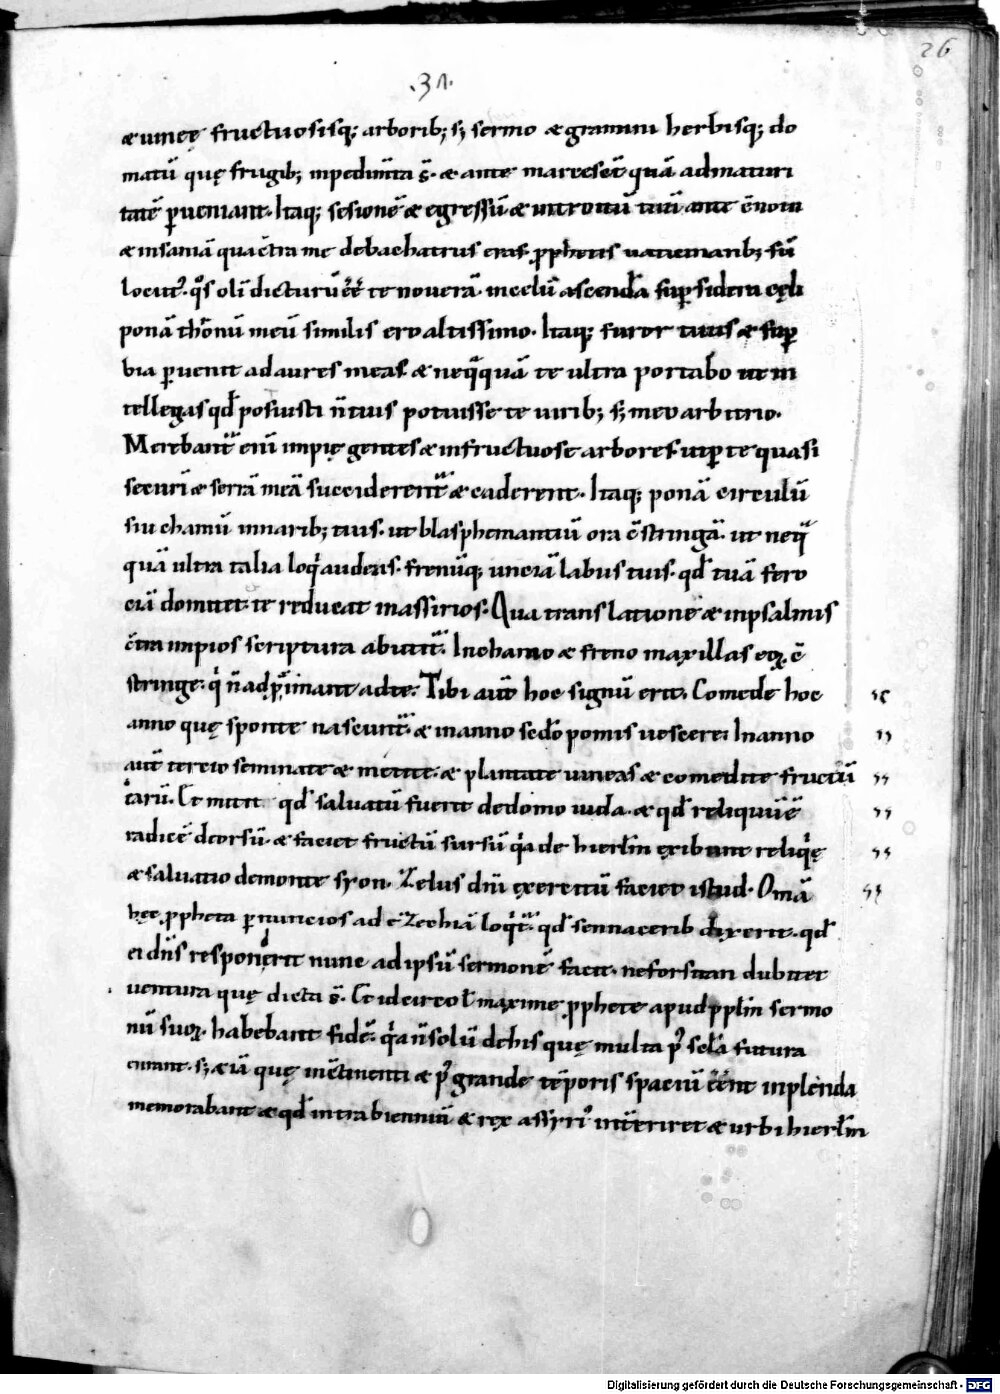 26
.31.
æ uineę fructuosisq; arborib; s; sermo æ graminū herbisq; do
matū quę frugib; inpedimta s̄. æ ante marcesct̄ quā admaturi
tatē ꝑueniant. Itaq; sesionē æ egressū æ introitū tuū ante ēnoui
æ insaniā qua ct̄ra me debachatus eras. ꝓphetis uaticinantib; sū
locut'. qͦs olī dicturū ēē te nouerā. incelū ascendā sup̱ sidera cęli
ponā thronū meū similis ero altissimo. Itaq; furor tuus æ sup̱
bia ꝑuenit ad aures meas. æ neqͣquā te ultra portabo ut in
tellegas qd̄ potuisti n̄ tuis potuisse te uirib; s; meo arbitrio.
Merebantͬ eni impię gentes æ infructuosę arbores. ut ꝑ te quasi
securī æ serrā meā succiderentͬ æ caderent. Itaq; ponā circulū
siu chamū innarib; tuis. ut blasphemantiū ora c̄stringā. ut neqͣ
quā ultra talia loqͥ audeas. frenūq; unciā labiis tuis. qd̄ tuā fero
ciā domitet. te reducat inassirios. Qua translationē æ inpsalmis
c̄tra impios scriptura abutitͬ. Inchamo æ freno maxillas eoꝝ c̄
stringe. qͥ n̄ adꝓximant adte. Tibi autē hoc signū erit. Comede hoc
anno quę sponte nascuntͬ. æ inanno secd̄o pomis uescere. Inanno
autē tercio seminate æ metite. æ plantate uineas æ comedite fructū
earū. Et mitt& qd̄ saluatū fuerit dedomo iuda. æ qd̄ reliquū ē
radicē deorsū. æ faciet fructū sursū qͥa de hierl̄m exibunt reliqͥę
æ saluatio demonte syon. Zelus dn̄i exercituū faciet istud. Omā
hęc ꝓpheta ꝑ nuncios ad ezechiā loqͥtͬ. qd̄ sennacerib dixerit. qd̄
ei dn̄s responderit nunc ad ipsū sermonē facit. ne forsitan dubitet
uentura quę dicta s̄. Et idcirco ł maxime ꝓphetę apud ppl̄m sermo
nū suoꝝ habebant fidē. qͥa n̄solū dehis quę multa p' secl̄a futura
erant. s; æiā quę inc̄tinenti æ p' grande tēporis spaciū eēnt inplenda
memorabant æ qd̄ intra bienniū æ rex assyri' int̄eriret æ urbi hierl̄m
Digitalisierung gefördert durch die Deutsche Forschungsgemeinschaft - DFG